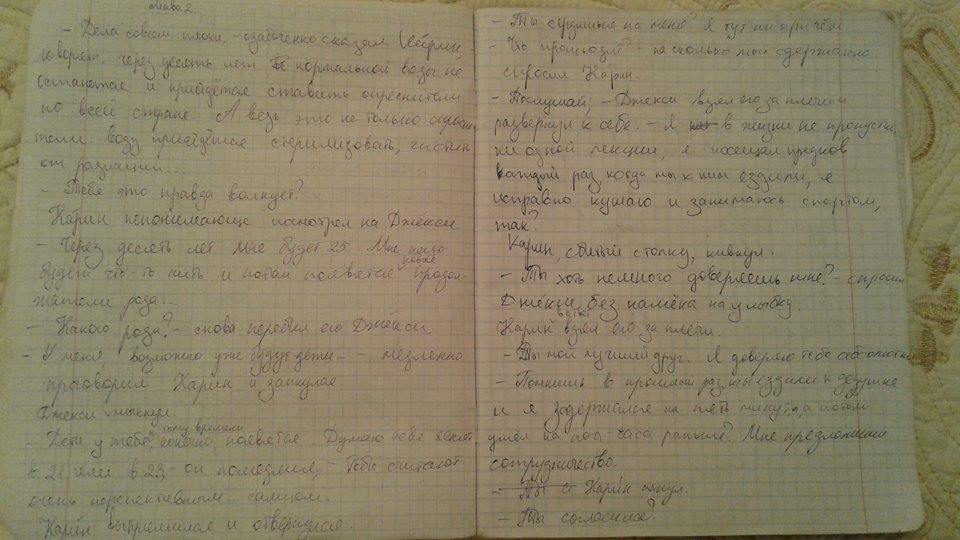 Глава 2
- Дела совсем плохи, - озабоченно сказал Кáрин, -
говорят, через десять лет нормальной воды не
останется и прийдётся ставить опреснители
по всей стране. А ведь это не только опресни
тели воду прийдётся стерилизовать, чистить
от радиации...
- Тебя это правда волнует?
Карин непонимающе посмотрел на Джекси
- Через десять лет мне будет 25. Мне надо
будет что-то пить и потом появятся новые продол-
жатели рода...
- Какого рода? - снова перебил его Джекси.
- У меня возможно уже будут дети - - медленно
проговорил Карин и заткнулся.
Джекси хмыкнул.
- Дети у тебя, конечно, к тому времени появятся. Думаю тебя
в 21 или в 23, - он помедлил, - Тебя считают
очень перспективным... самцом.
Карин выпрямился и отвернулся.
- Ты сердишься на меня? Я тут ни при чём
- Что происходит? - на сколько мог сдержанно
спросил Карин.
- Послушай, - Джекси взял его за плечи и
развернул к себе. - Я в жизни не пропустил
ни одной лекции, я посещал предков
каждый раз, когда мы к ним ездили, я
исправно кушаю и занимаюсь спортом,
так?
Карин, сбитый с толку, кивнул.
- Ты хоть немного доверяешь мне? - спросил
Джекси без намёка на улыбку.
Карин взял его за плечи.
- Ты мой лучший друг. Я доверяю тебе абсолютно
- Помнишь в прошлый раз мы ездили к дедушке
и я задержался на пять минут, а потом
ушёл на пол-часа раньше? Мне предложили
сотрудничество.
Карин
- Ты согласился?